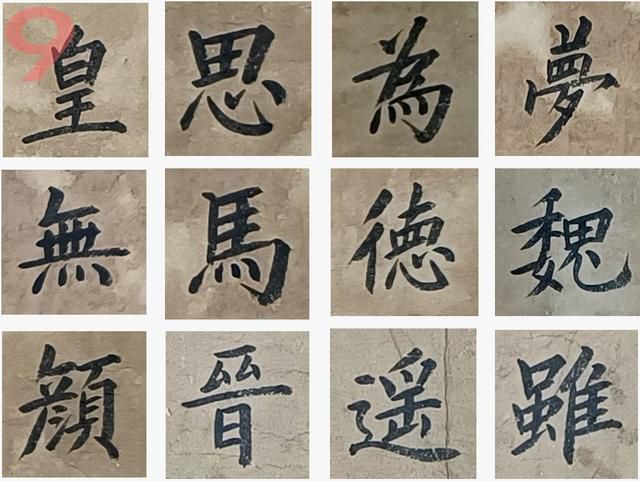 9
皇思為夢
無馬德魏
顔晉遥雖